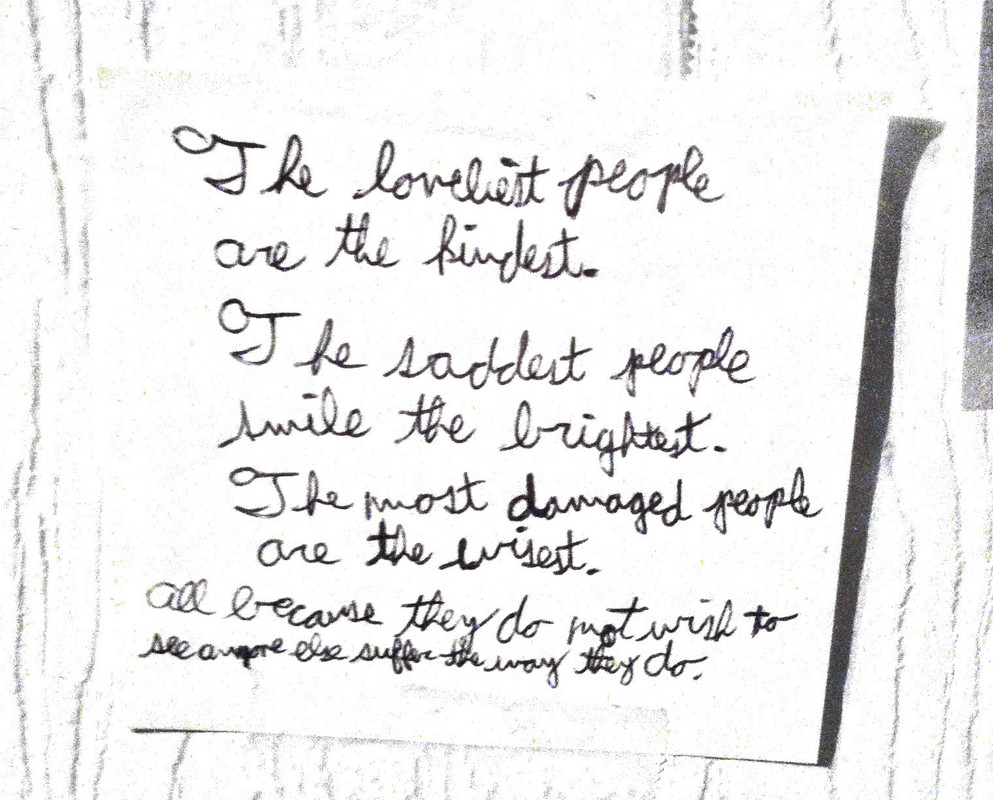 The loveliest people
are the kindest.
The saddest people
smile the brightest.
The most damaged people
are the wisest.
All because they do not wish to
see anyone else suffer the way they do.